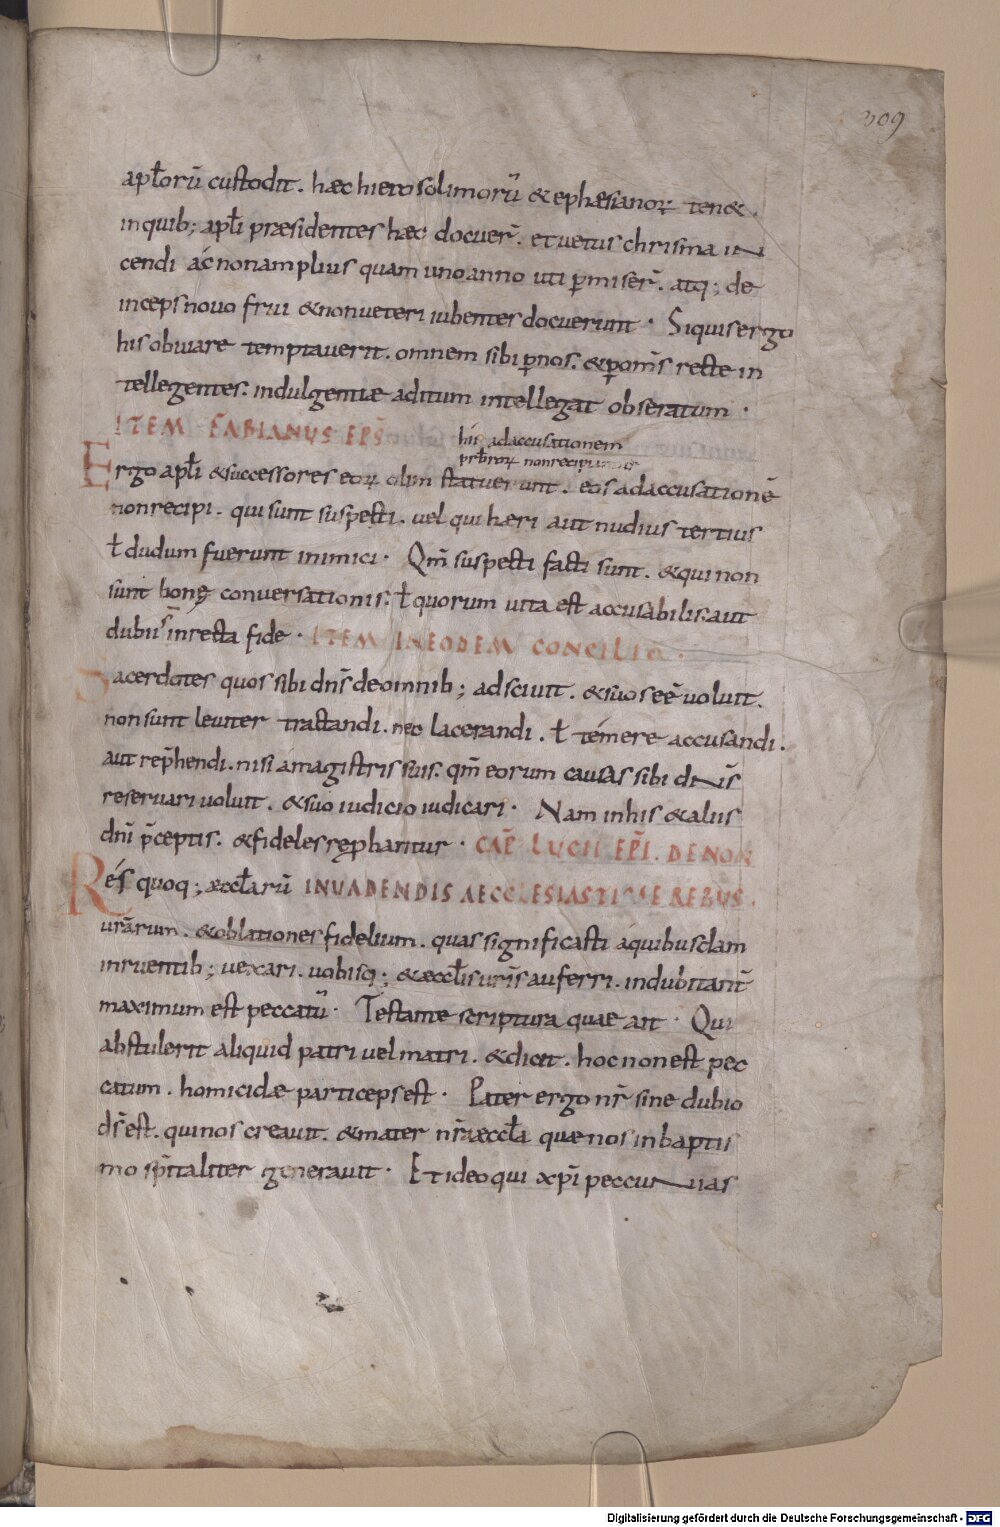 309
apl̄orū custodit. haec hierosolimorū & ephæsianoꝝ ten&.
in quib; apl̄i præsidentes haec docuer̄. et uetus chrisma in
cendi ac non amplius quam uno anno uti p̄miser̄. atq; de
inceps nouo frui & non ueteri iubentes docuerunt · Siquis ergo
his obuiare temptauerit. omnem sibi p̄ nos. & p̄ om̄s recte in
tellegentes. indulgentiæ aditum intellegat obseratum ·
ITEM FABIANUS EPS̄
hii ad accusationem
prb̄roꝝ non recipiantur
Ergo apl̄i & successores eoꝝ olim statuerunt. eos ad accusationē
non recipi. qui sunt suspecti. uel qui hæri aut nudius tertius
ł dudum fuerunt inimici · Qm̄ suspecti facti sunt. & qui non
sunt bonę conuersationis. ł quorum uita est accusabilis. aut
dubii s̄ in recta fide · ITEM IN EODEM CONCILIO ·
Sacerdotes quos sibi dn̄s de omnib; adsciuit. & suos eē uoluit.
non sunt leuiter tractandi. nec lacerandi. ł temere accusandi.
aut rep̄hendi. nisi a magistris suis. qm̄ eorum causas sibi dn̄s
reseruari uoluit. & suo iudicio iudicari · Nam in his & aliis
dn̄i p̄ceptis. & fideles rępharitur · CAP̄ LUCII EP̄I. DE NON
Res quoq; æccl̄arū INUADENDIS AECCLESIASTICAE REBUS.
urārum. & oblationes fidelium. quas significasti a quibusdam
inruentib; uexari. uobisq; & æccl̄is ur̄is auferri. indubitant̄
maximum est peccatū · Testante scriptura quae ait · Qui
abstulerit aliquid patri uel matri. & dicit. hoc non est pec
catum. homicidæ particeps est · Pater ergo nr̄ sine dubio
ds̄ est. qui nos creauit. & mater nr̄a æccl̄a quæ nos in baptis
mo sp̄italiter generauit · Et ideo qui xp̄i peccunias
Digitalisierung gefördert durch die Deutsche Forschungsgemeinschaft - DFG